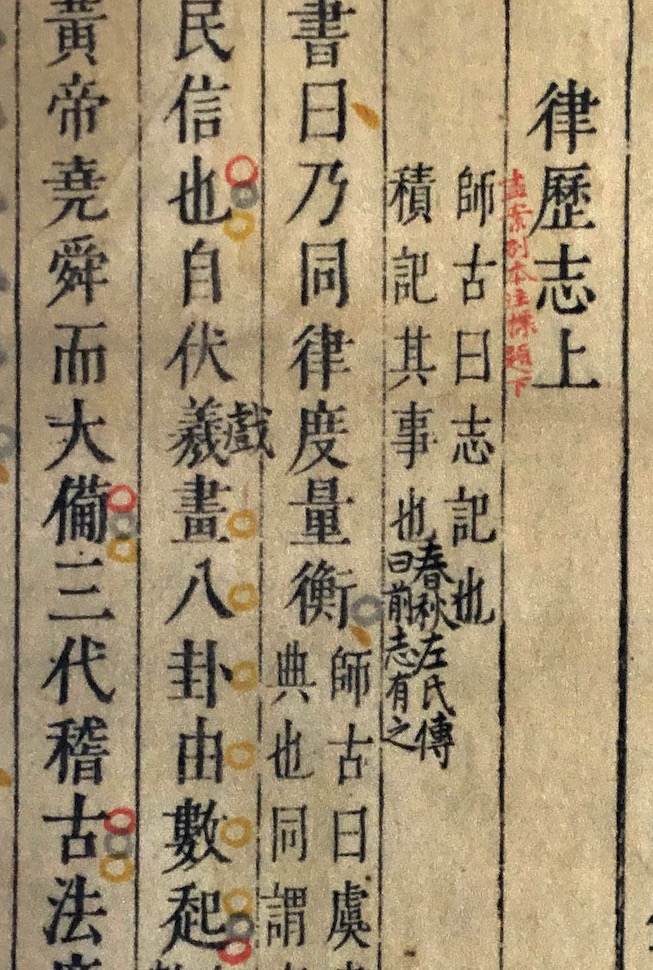 律歷志上
盡案別本注標題下
師古曰志記也
積記其事也
春秋左氏傳
曰前志有之
書曰乃同律度量衡
師古曰虞
典也同謂
民信也自伏羲畫八卦由數起
戲
黃帝堯舜而大備三代稽古法